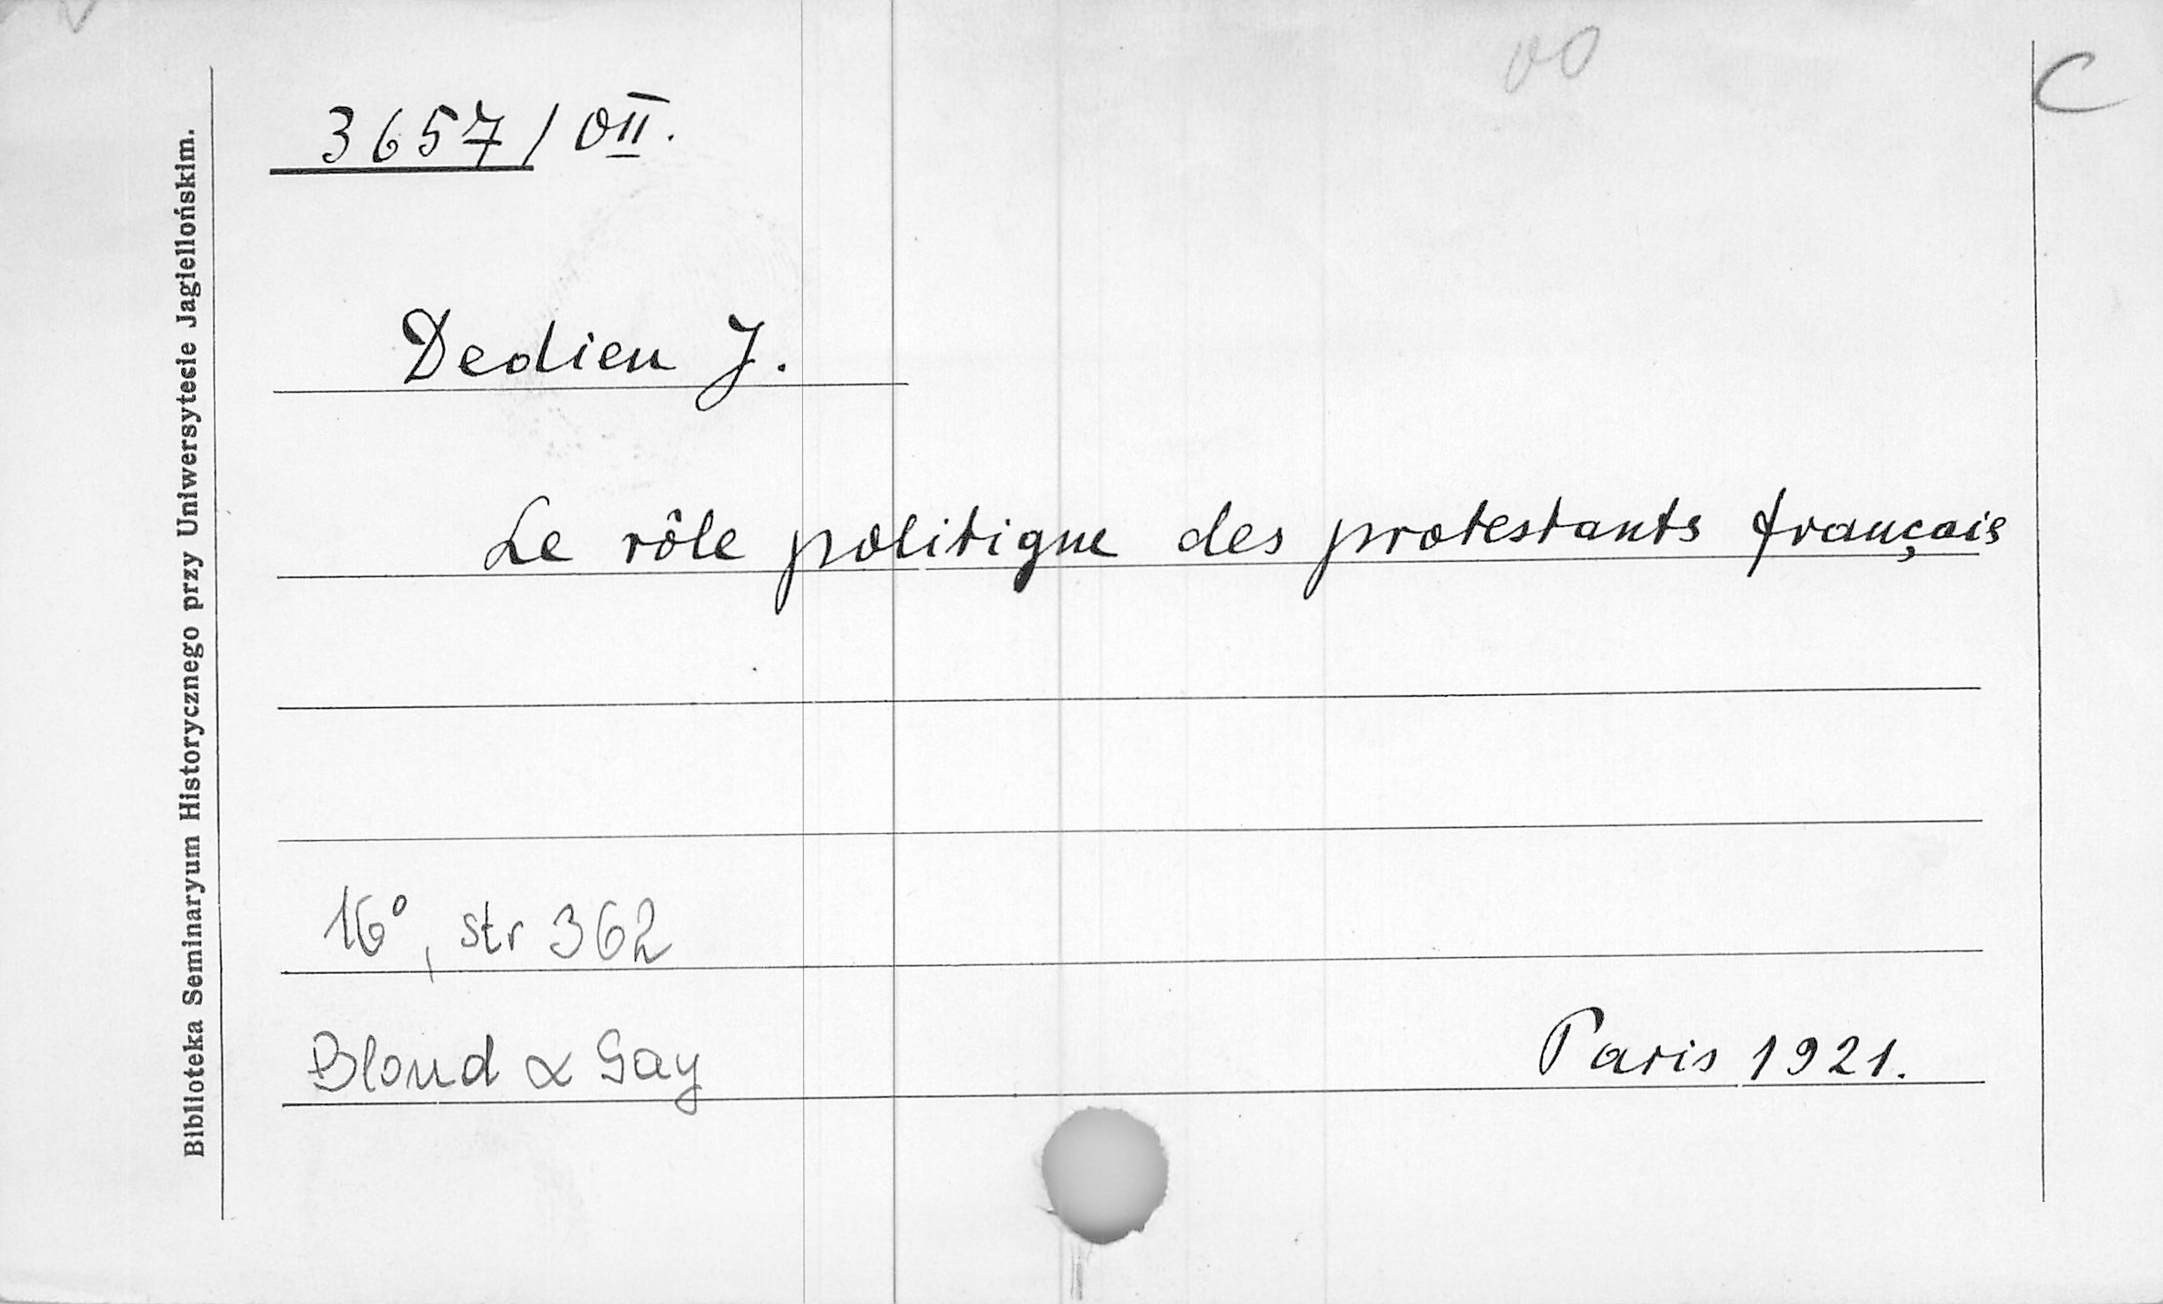 3657/OII.
C
Dedieu J.
Le rôle politique des protestants français
16°, str 362
Bloud & Gay
Paris 1921.
Biblioteka Seminaryum Historycznego przy Uniwersytecie Jagiellońskim.